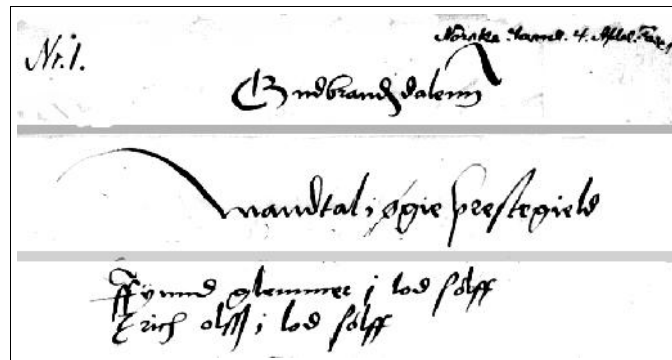 Nr. 1.
Norske Saml. 4. Afdel.
Gudbrandzdalenn
Mandtal i øgie prestegield
ffynnd glemmer j lod sølff
Erich olss i lod sølff